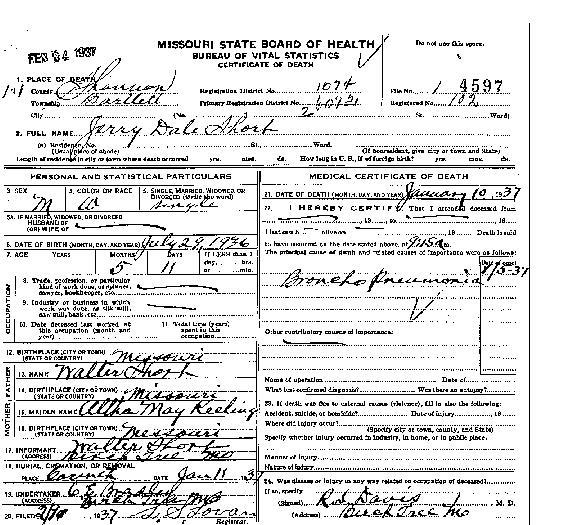 FEB 24 1937
MISSOURI STATE BOARD OF HEALTH
BUREAU OF VITAL STATISTICS
CERTIFICATE OF DEATH
Do not use this space.
1. PLACE OF DEATH
County Shannon
Registration District No. 1074
File No. 4597
Township Bartlett
Primary Registration District No.
Registered No. 102
City
No.
St.
Ward)
2. FULL NAME Jerry Dale Short
(a) Residence, No. St. Ward.
(Usual place of abode) (If nonresident, give city or town and State)
Length of residence in city or town where death occurred yrs. mos. ds. How long in U. S., if of foreign birth? yrs. mos. ds.
PERSONAL AND STATISTICAL PARTICULARS
3. SEX M
4. COLOR OR RACE W
5. SINGLE, MARRIED, WIDOWED, OR DIVORCED (write the word) Single
5A. IF MARRIED, WIDOWED, OR DIVORCED
HUSBAND OF
(OR) WIFE OF
6. DATE OF BIRTH (MONTH, DAY, AND YEAR) July 29, 1936
7. AGE YEARS MONTHS DAYS If LESS than 1 day, hrs. or min.
5 11
OCCUPATION
8. Trade, profession, or particular kind of work done, as spinner, sawyer, bookkeeper, etc.
9. Industry or business in which work was done, as silk mill, saw mill, bank, etc.
10. Date deceased last worked at this occupation (month and year)
11. Total time (years) spent in this occupation
12. BIRTHPLACE (CITY OR TOWN) Missouri
(STATE OR COUNTRY)
FATHER
13. NAME Walter Short
14. BIRTHPLACE (CITY OR TOWN) Missouri
(STATE OR COUNTRY)
MOTHER
15. MAIDEN NAME Altha May Keeling
16. BIRTHPLACE (CITY OR TOWN) Missouri
(STATE OR COUNTRY)
17. INFORMANT Walter Short
(ADDRESS) Birch Tree Mo
18. BURIAL, CREMATION, OR REMOVAL
PLACE Corinth DATE Jan 11 1937
19. UNDERTAKER
(ADDRESS) Birch Tree Mo
20. FILED 1937
Registrar.
MEDICAL CERTIFICATE OF DEATH
21. DATE OF DEATH (MONTH, DAY, AND YEAR) January 10, 1937
22. I HEREBY CERTIFY, That I attended deceased from
, 19 , to , 19
I last saw h alive on , 19 Death is said
to have occurred on the date stated above, at m.
The principal cause of death and related causes of importance were as follows:
Date of onset
Broncho Pneumonia
Other contributory causes of importance:
Name of operation Date of
What test confirmed diagnosis? Was there an autopsy?
23. If death was due to external causes (violence), fill in also the following:
Accident, suicide, or homicide? Date of injury , 19
Where did injury occur?
(Specify city or town, county, and State)
Specify whether injury occurred in industry, in home, or in public place.
Manner of injury
Nature of injury
24. Was disease or injury in any way related to occupation of deceased?
If so, specify
(Signed) R.D. Davis M. D.
(Address) Birch Tree Mo